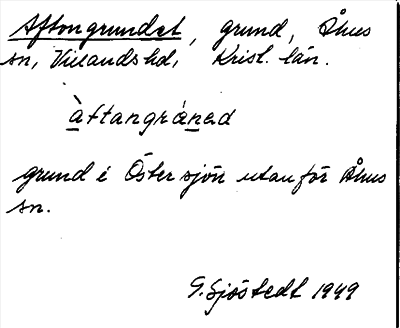 Aftongrundet, grund, Åhus
sn, Villands hd, Krist. län.
àftangráned
grund i Östersjön utanför Åhus
sn.
G. Sjöstedt 1949